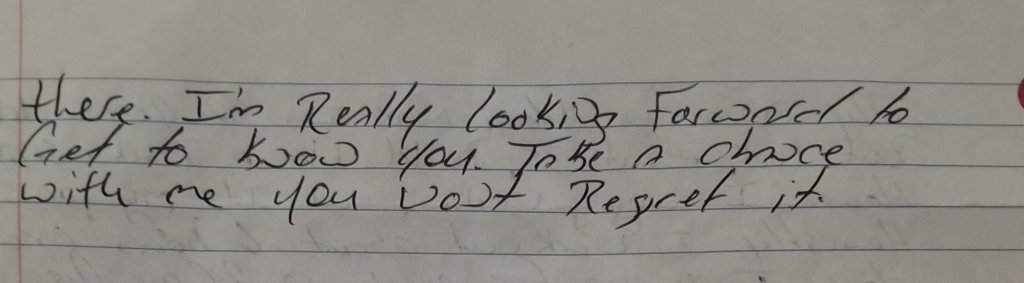 there. I'm Really looking Forward to
Get to know you. Take a chance
with me you wont Regret it.